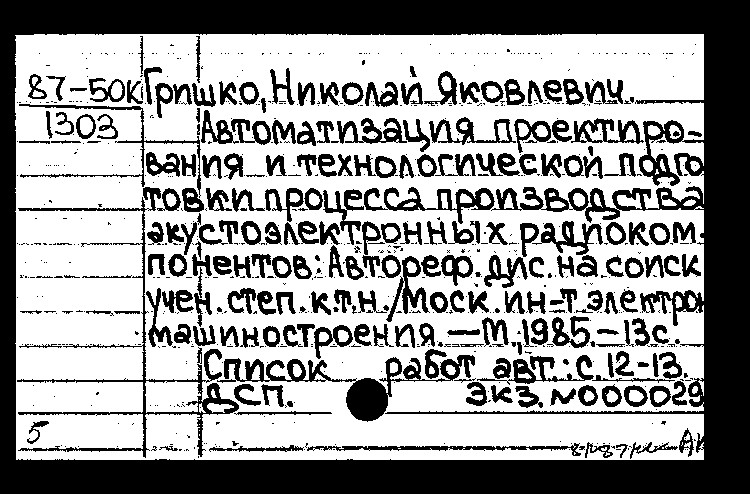 87-50К Гришко, Николай Яковлевич.
1303 Автоматизация проектиро-
вания и технологической подго
товки процесса производства
акустоэлектронных радиоком-
понентов: Автореф. дис. на соиск
учен. степ. к.т.н. / Моск. ин-т электрон
машиностроения. — М., 1985. – 13 с.
Список работ авт.: с. 12-13.
ДСП. Экз. №000029
5